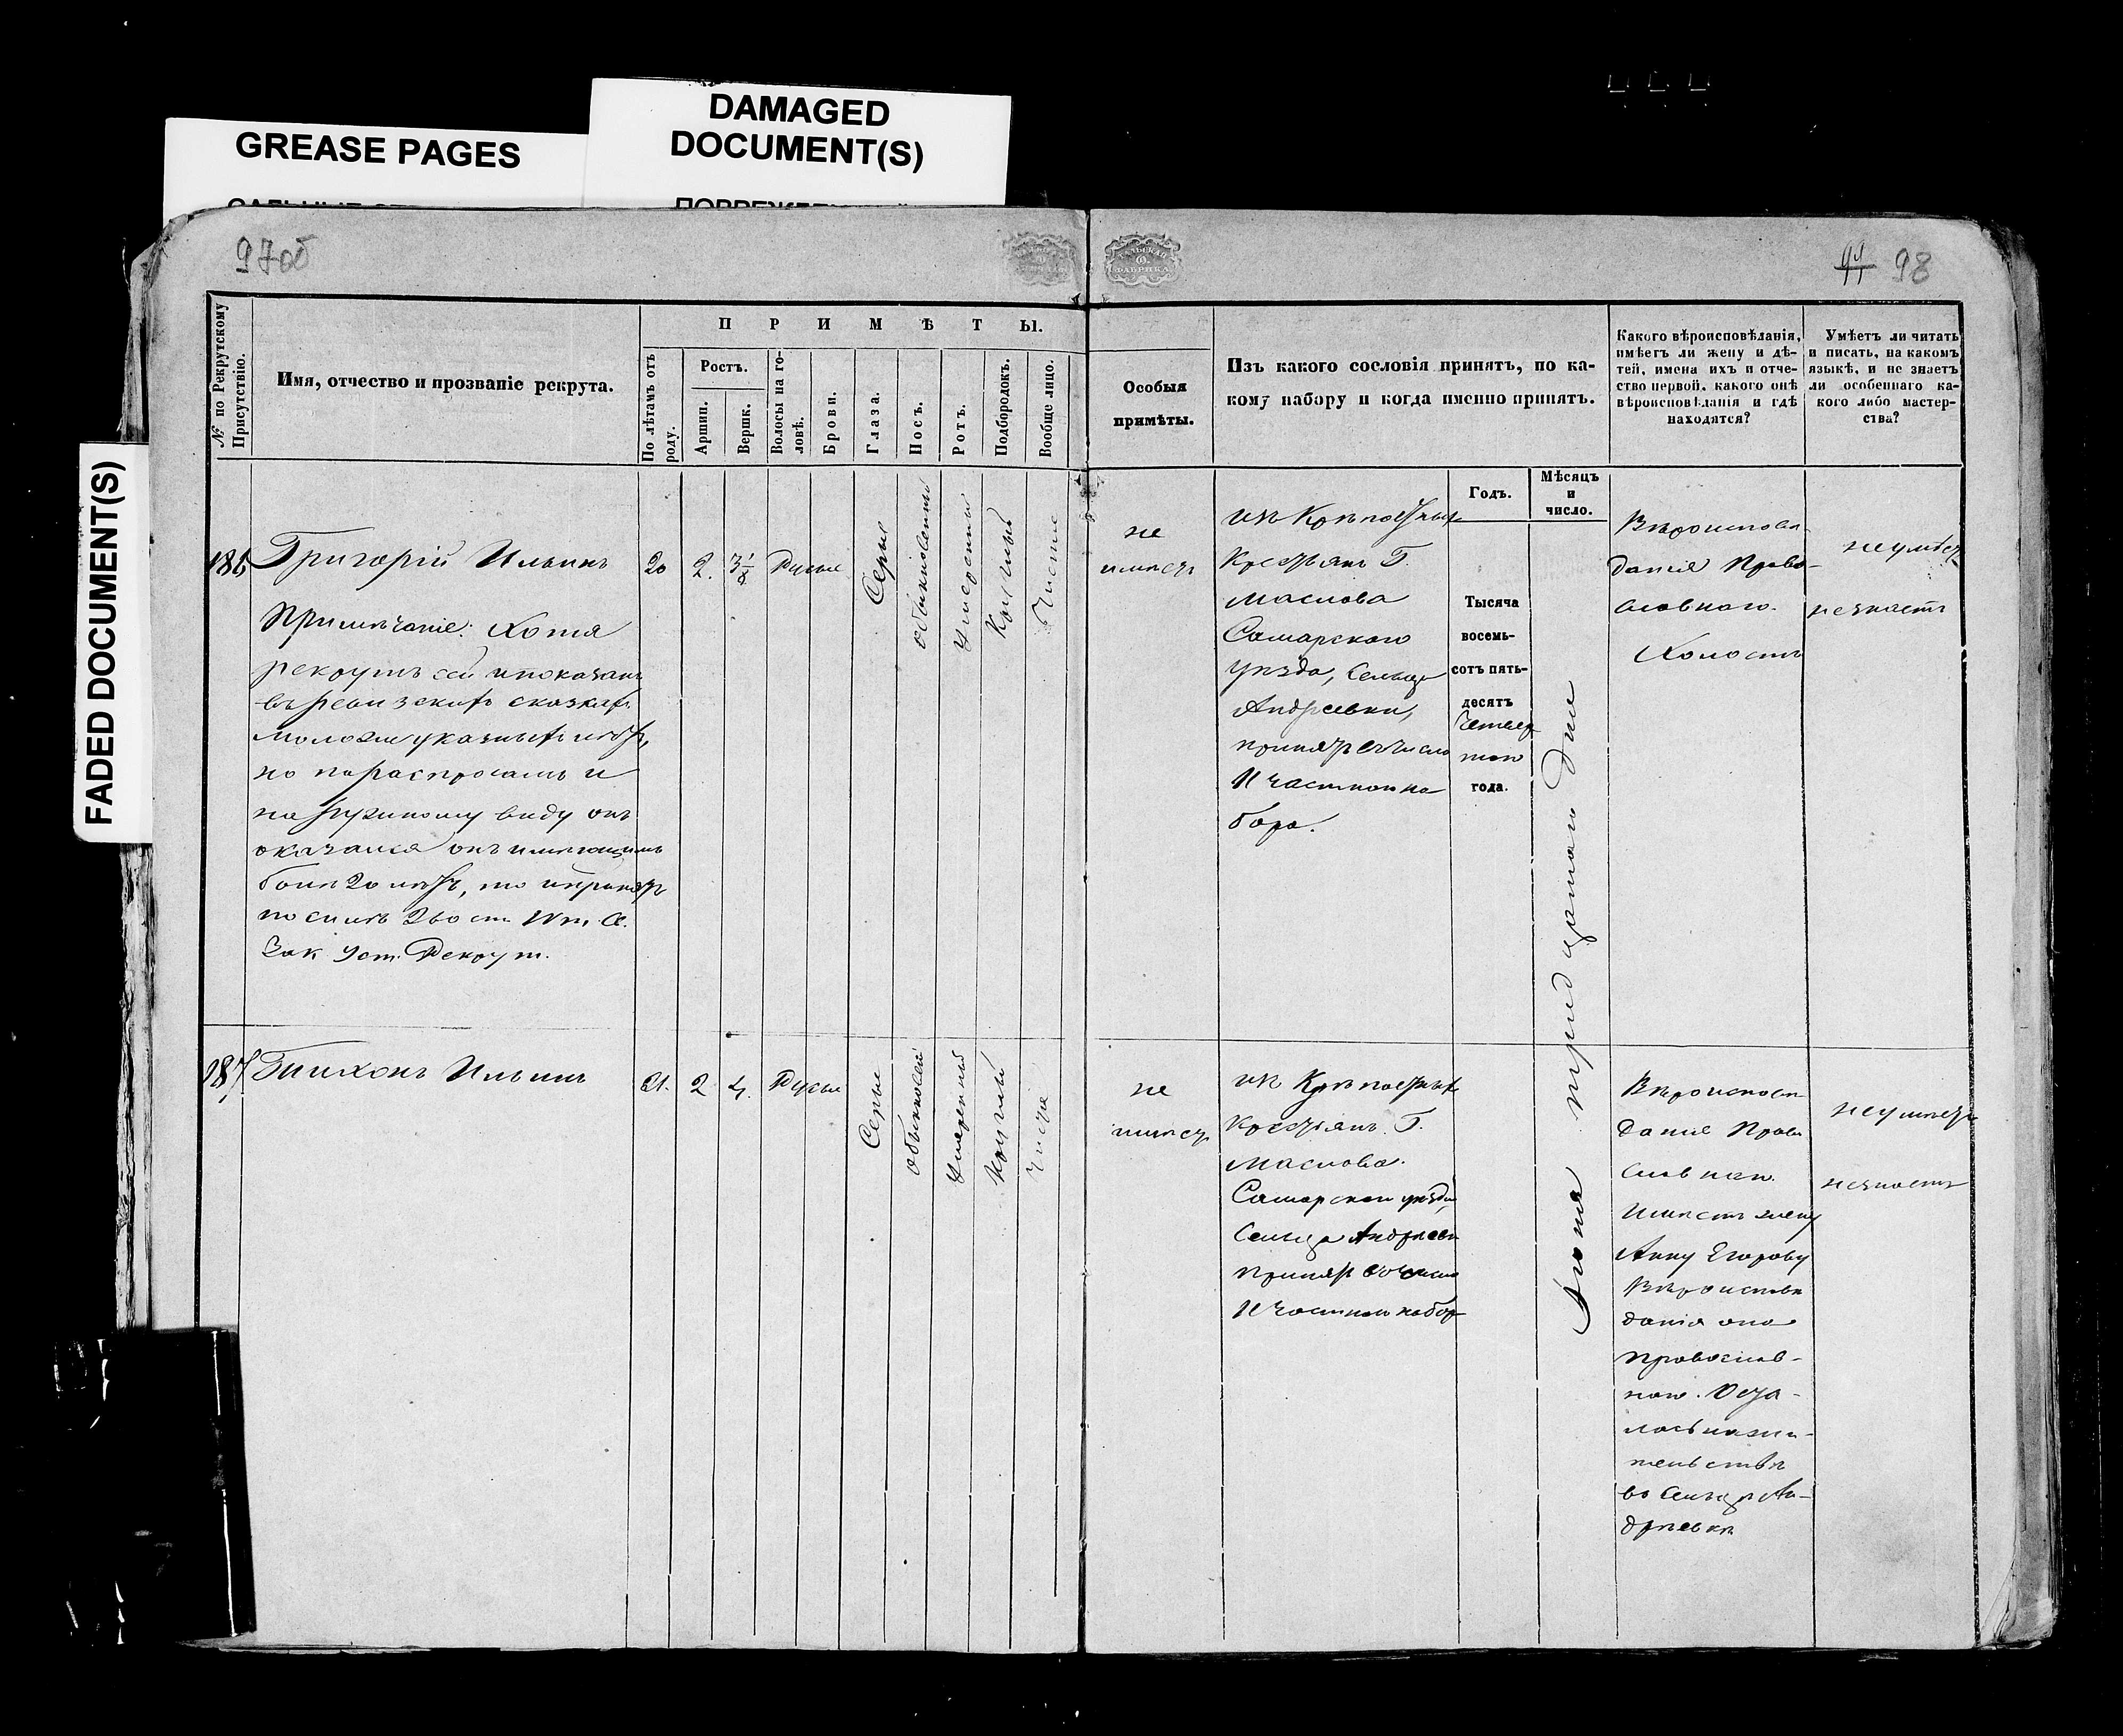 GREASE PAGES
DAMAGED
DOCUMENT(S)
FADED DOCUMENT(S)
97об
98
№ по Рекрутскому
Присутствію.
Имя, отчество и прозваніе рекрута.
ПРИМѢТЫ.
По лѣтамъ отъ
роду.
Ростъ.
Аршин.
Вершк.
Волосы на го-
ловѣ.
Брови.
Глаза.
Носъ.
Ротъ.
Подбородокъ.
Вообще лицо.
Особыя
примѣты.
Изъ какого сословія принятъ, по ка-
кому набору и когда именно принятъ.
Какого вѣроисповѣданія,
имѣетъ ли жену и дѣ-
тей, имена ихъ и отче-
ство первой, какого онѣ
вѣроисповѣданія и гдѣ
находятся?
Умѣетъ ли читать
и писать, на какомъ
языкѣ, и не знаетъ
ли особеннаго ка-
кого либо мастер-
ства?
Годъ.
Мѣсяцъ
и
число.
186
Григорій Ильинъ
Примѣчаніе: Хотя
рекрутъ сей и показанъ
въ ревизскихъ сказкахъ
моложе указныхъ лѣтъ,
но по распросамъ и
наружному виду онъ
оказался онъ имѣющимъ
болѣ 20 лѣтъ, то и принятъ
по силѣ 260 ст. IV т. Св.
Зак. Уст. Рекрут.
20
2.
3 1/8
Русые
Серые
обыкновенный
Умеренный
Круглый
Чистое
не
имѣетъ
изъ Крѣпостныхъ
Крестьянъ Г.
Маслова
Самарскаго
уѣзда, Сельца
Андреевки,
принятъ въ число
11 частнаго на
бора.
Тысяча
восемь-
сотъ пять-
десятъ
Четвер
таго
года.
Іюня тридцатаго дня
Вѣроисповѣ
данія Право-
славнаго.
Холостъ
неумѣетъ
незнаетъ
187
Тихонъ Ильинъ
21.
2
4.
Русые
Серые
обыкновенный
Умеренный
Круглый
Чистое
не
имѣетъ
изъ Крѣпостныхъ
Крестьянъ Г.
Маслова.
Самарскаго уѣзда,
Сельца Андреевки
принятъ въ число
11 частнаго набора
Вѣроисповѣ
данія Право
славнаго.
Имѣетъ жену
Анну Егорову
Вѣроисповѣ
данія она
православ-
наго. Оста-
лась на жи-
тельствѣ
въ Сельцѣ Ан-
дреевкѣ
неумѣетъ
незнаетъ